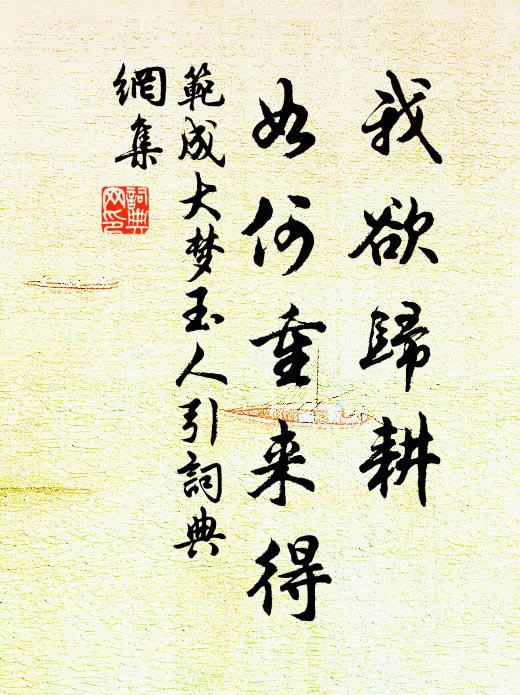 我欲歸耕
如何重来得
範成大梦玉人引詞典
網集
詞典
网印